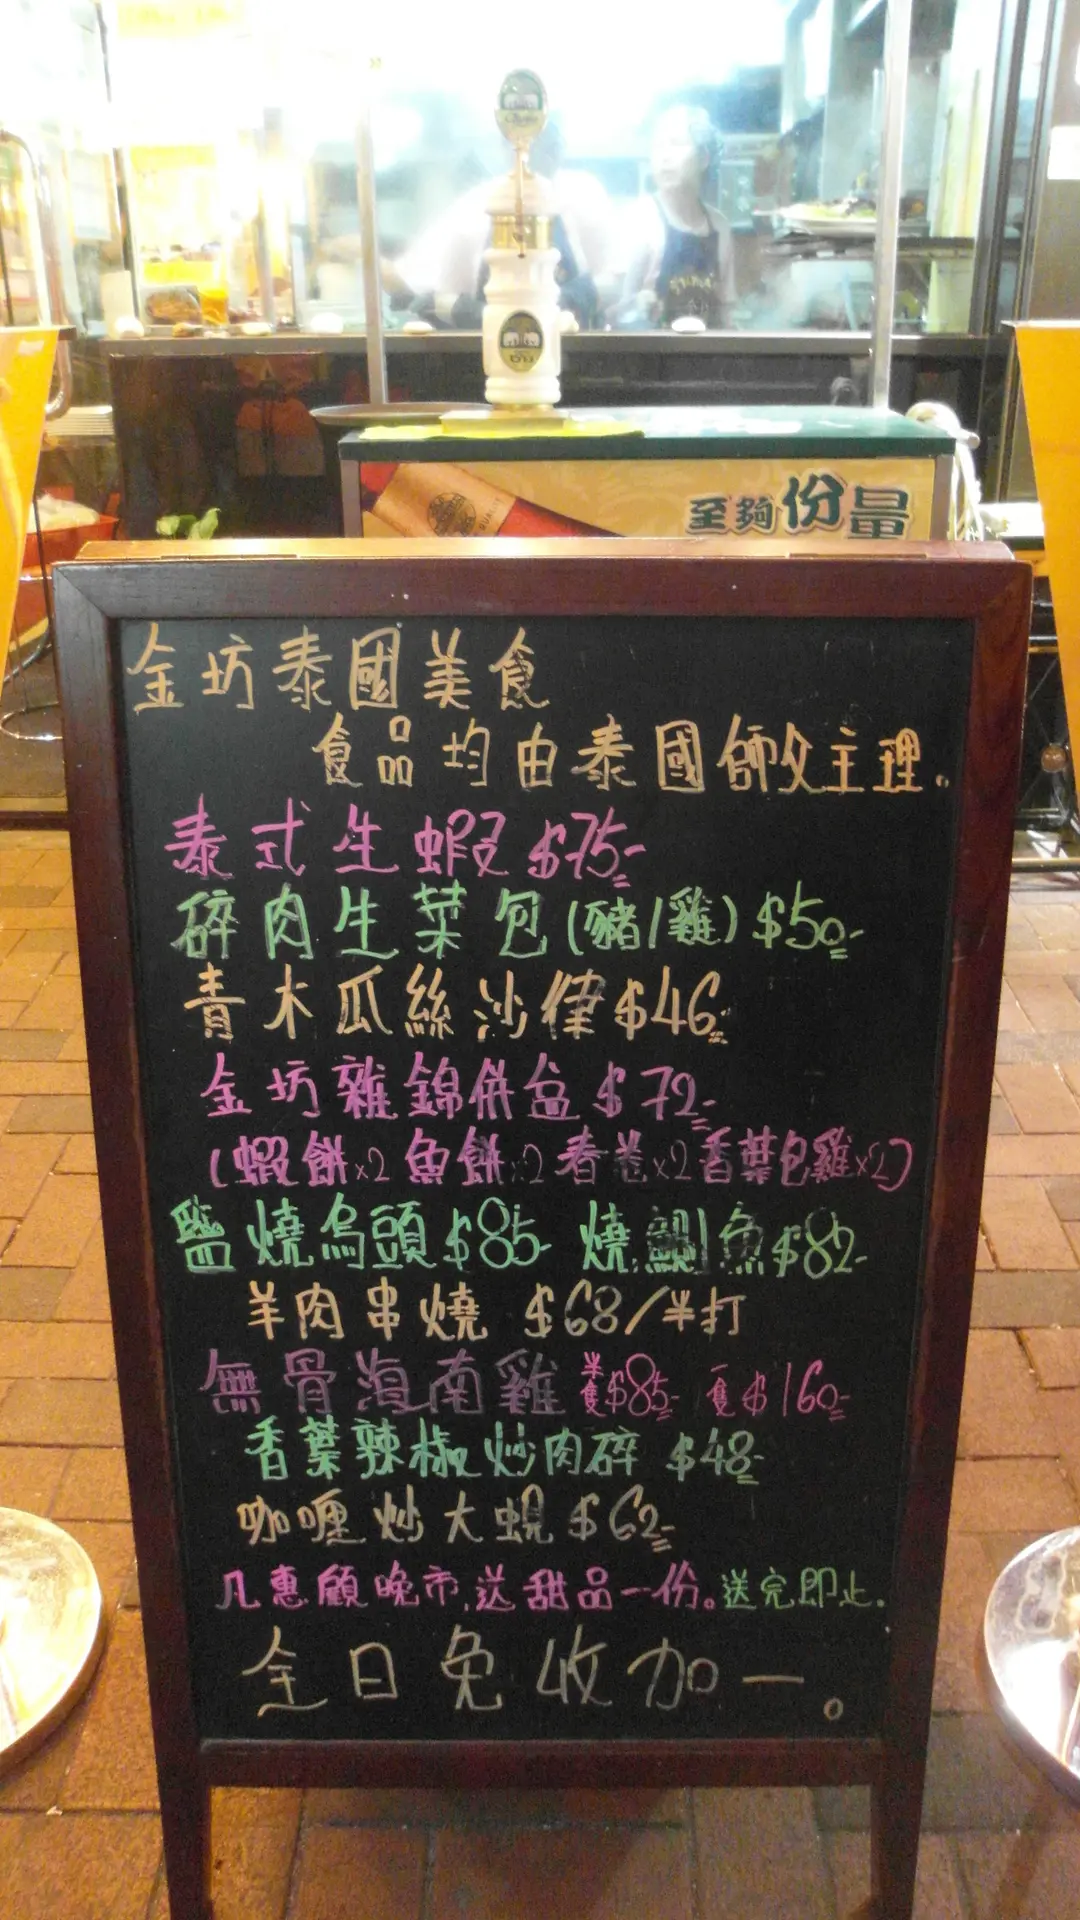 至夠份量
金坊泰國美食
食品均由泰國師父主理。
泰式生蝦$75-
碎肉生菜包(豬/雞)$50-
青木瓜絲沙律$46-
金坊雜錦併盆$72-
(蝦餅x2魚餅x2春卷x2香葉包雞x2)
鹽燒烏頭$85- 燒鯽魚$82-
羊肉串燒 $68/半打
無骨海南雞 半隻$85- 隻$160-
香葉辣椒炒肉碎 $48-
咖喱炒大蜆$62-
凡惠顧晚市,送甜品一份。送完即止.
全日免收加一。